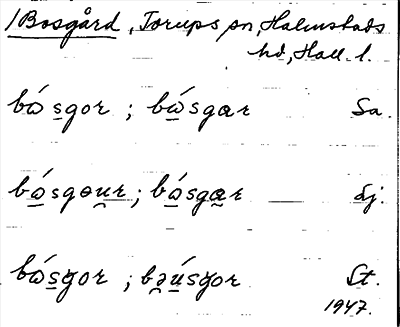 /Bosgård, Torups sn, Halmstads
hd, Hall. l.
bώ́s̲gor ; bώ̲́sgɑr Sa.
bώ̲́sgɵu̲̯r̲ ; bώ̲́sgɑ̲r Lj.
bώ́s̲ɡ̌or ; bə̯ú̲sɡ̌or St.
1947.